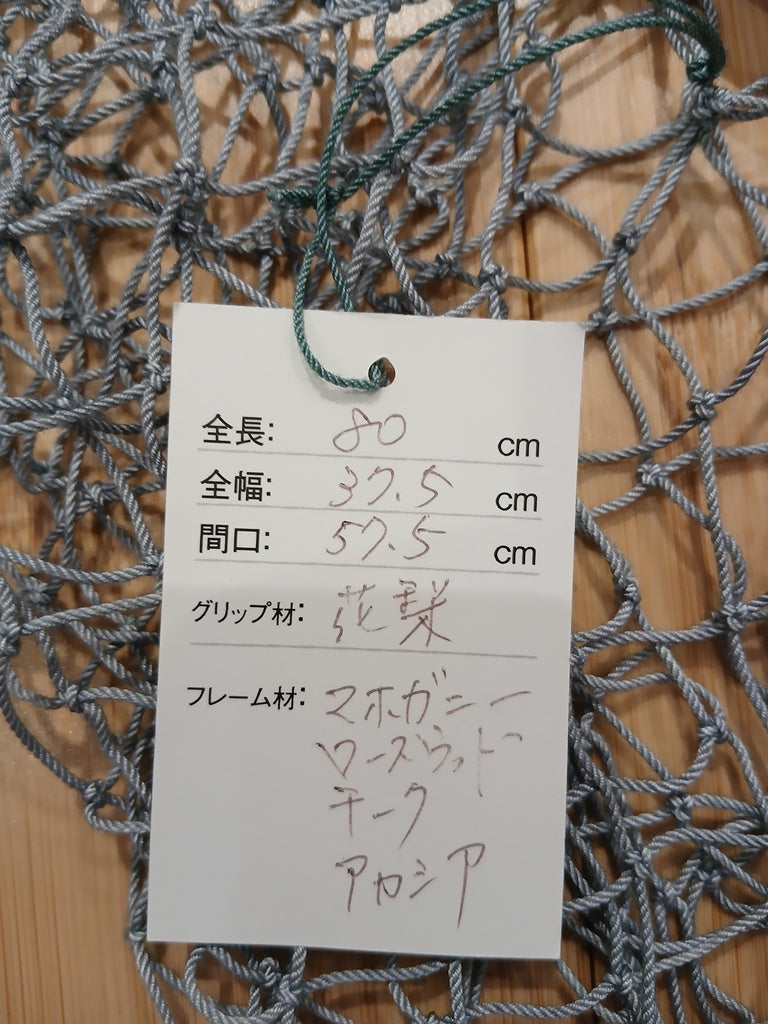 全長: 80 cm
全幅: 37.5 cm
間口: 57.5 cm
グリップ材: 花梨
フレーム材: マホガニー
ローズウッド
チーク
アカシア